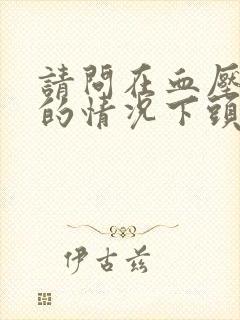 請問在血壓
的情況下頭
伊古兹